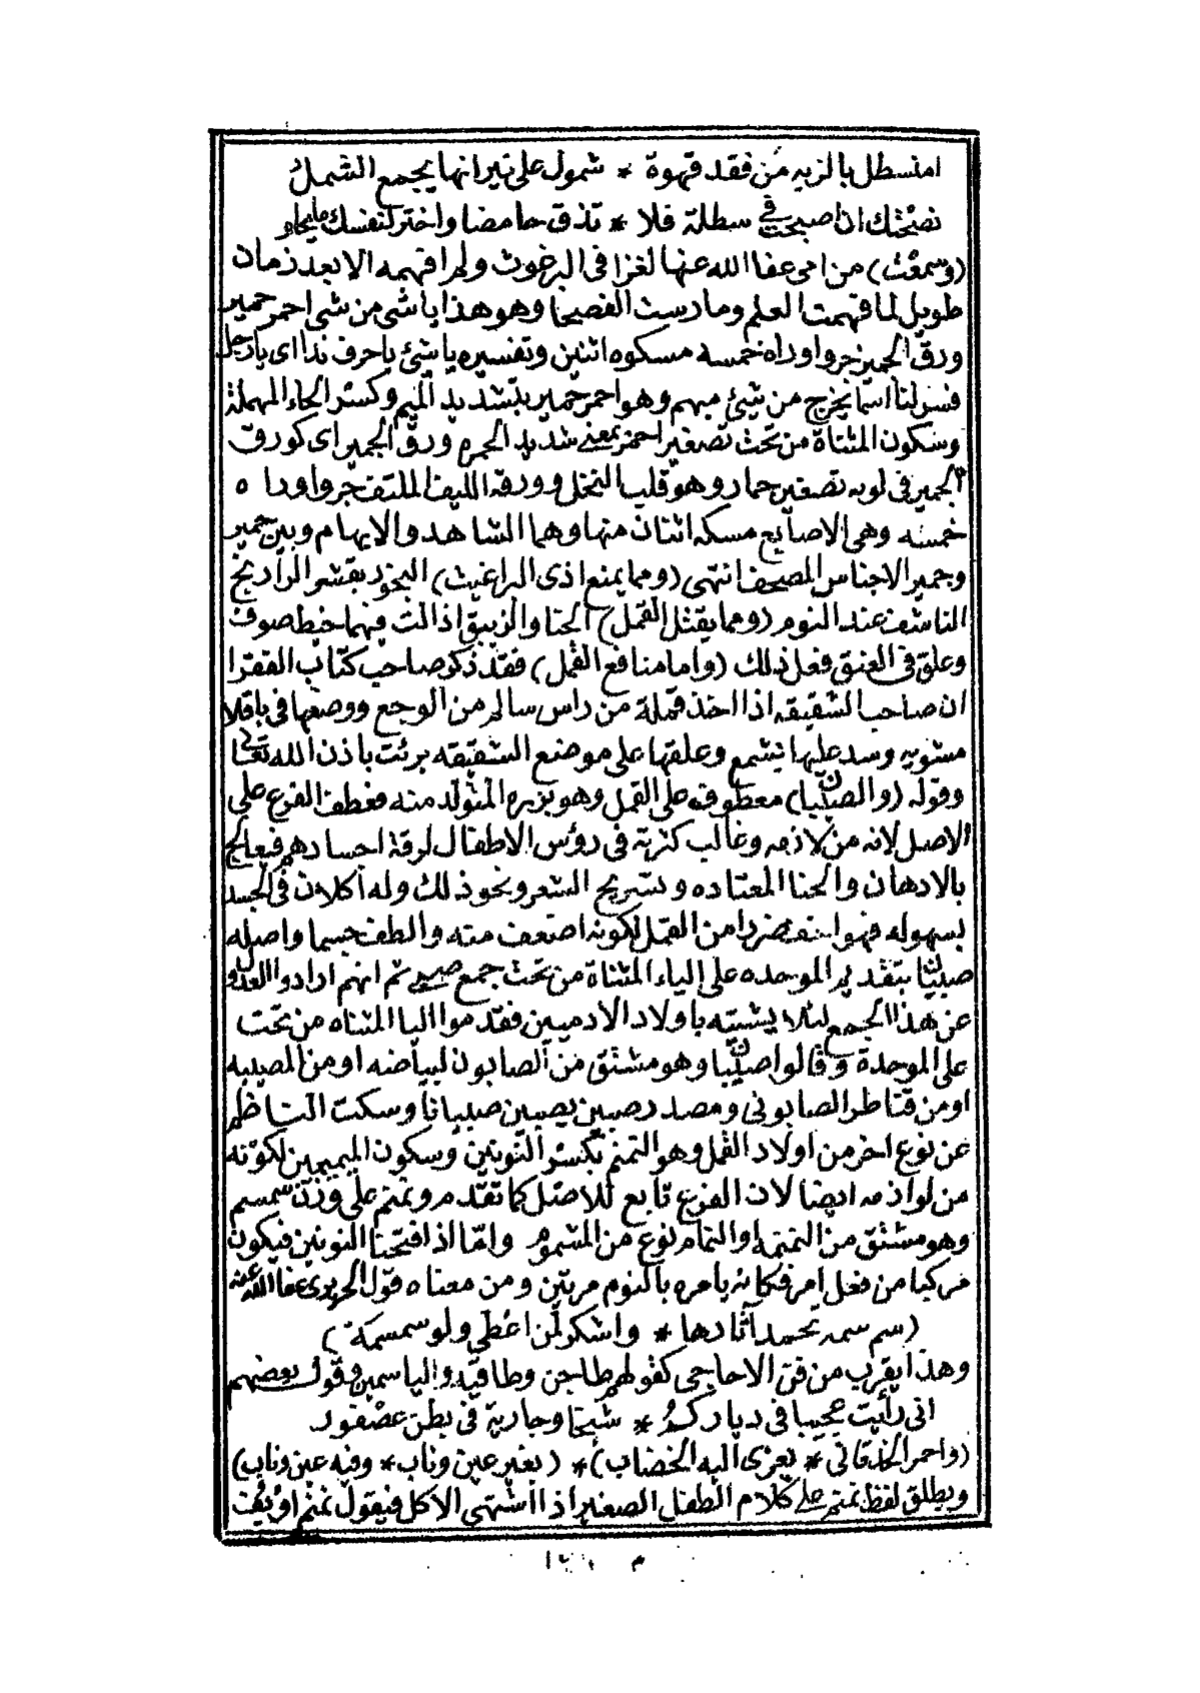 امنسطل بالزيه من فقد قهوة * شمول على نيرانها يجمع الشمل
نصحتك ان اصبحت في سطلة فلا * تذق حامضا واختر لنفسك مايحلو
(وسمعت) من امى عفا الله عنها لغزا فى البرغوث ولم افهمه الا بعد زمان
طويل لما فهمت العلم ومارست الفصحا وهو هذا ياشى من شى احمر حمير
ورق الجمير جروا وراه خمسه مسكوه اثنين وتفسيره ياشئ ياحرف ندا اى يارجل
فسر لنا اسما يخرج من شئ مبهم وهو احمر حمير بتشديد الميم وكسر الحاء المهملة
وسكون المثناة من تحت تصغير احمر بمعنى شديد الحمره ورق الجمير اى كورق
الجمير فى لونه تصغير جمار وهو قلب النخل وورقه الليف الملتف جروا ورا ه
خمسه وهى الاصابع مسكه اثنان منها وهما الشاهد والابهام وبين حمير
وجمير الاجناس المصحف انتهى (ومما يمنع اذى البراغيث) البخور بقشر النارنج
الناشف عند النوم (ومما يقتل القمل) الحنا والزيبق اذا لت فيهما خيط صوف
وعلق فى العنق فعل ذلك (واما منافع القمل) فقد ذكر صاحب كتاب الفقرا
ان صاحب الشقيقه اذا اخذ قملة من راس سالم من الوجع ووضعها فى باقلا
مثقوبه وسد عليها بشمع وعلقها على موضع الشقيقه برئت باذن الله تعالى
وقوله (والصئبان) معطوفه على القمل وهو بزره المتولد منه فعطف الفرع على
الاصل لانه من لازمه وغالب كثرته فى رؤس الاطفال لرقة اجسادهم فيعالج
بالادهان والحنا المعتاده وتسريح الشعر ونحو ذلك وله اكلان فى الجسد
بسهوله فهو اخف ضررا من القمل لكونه اضعف منه والطف جسما واصله
صبيان بتقديم الموحده على الياء المثناة من تحت جمع صبى ثم انهم ارادوا العدول
عن هذا الجمع لئلا يشتبه باولاد الادميين فقدموا اليا المثناه من تحت
على الموحدة وقالوا صيبان وهو مشتق من الصابون لبياضه او من المصيبه
او من قناطر الصابونى ومصدر صيبن يصيبن صيبانا وسكت الناظم
عن نوع اخر من اولاد القمل وهو النمنم بكسر النونين وسكون الميمين لكونه
من لوازمه ايضا لان الفرع تابع للاصل كما تقدم ونمنم على وزن سمسم
وهو مشتق من النمنمه او النمام نوع من المشموم واما اذا فتحنا النونين فيكون
مركبا من فعل امر فكانه يامره بالنوم مرتين ومن معناه قول الحريرى عفا الله عنه
(سم سمه تحمد آثارها * واشكر لمن اعطى ولو سمسمة)
وهذا يقرب من فن الاحاجى كقولهم طاجن وطاقيه والياسمين وقول بعضهم
انى رأيت عجيبا فى دياركمُ * شيخا وجارية فى بطن عصفور
(واحمر الخد قانى * يعزى اليه الخضاب) * (بغير عين وناب * وفيه عين وناب)
ويطلق لفظ نمنم على كلام الطفل الصغير اذا اشتهى الاكل فيقول نمنم او بُف